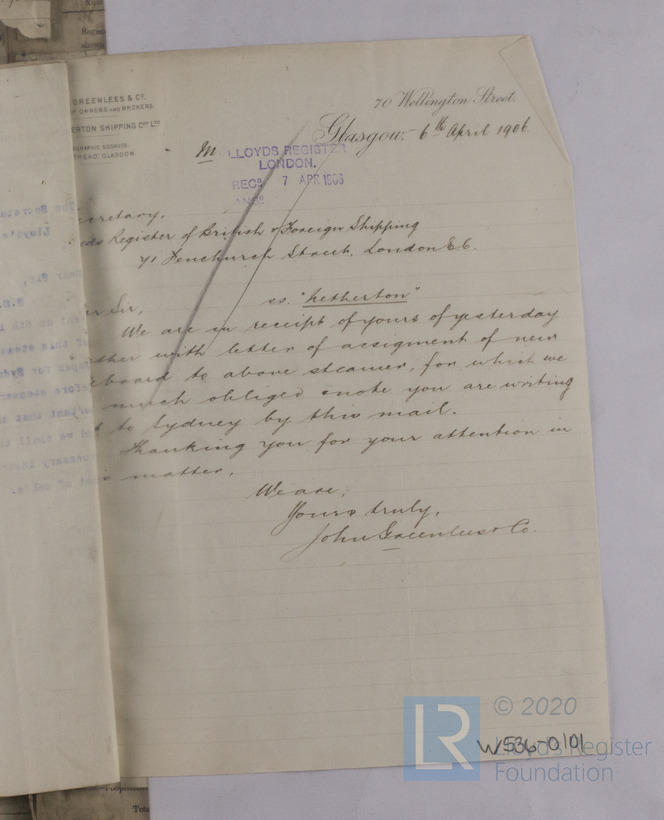 GREENLEES & Co.
OWNERS AND BROKERS.
ERTON SHIPPING Coy LTD
GRAPHIC ADDRESS:
THEAD, GLASGOW.
70 Wellington Street.
Glasgow, 6th April 1906.
LLOYDS REGISTER
LONDON.
RECD 7 APR 1906
ANSD
ecretary,
ds Register of British & Foreign Shipping
71 Fenchurch Street, London E.C.
r Sir,
ss. "Hetherton"
We are in receipt of yours of yesterday
ther with letter of assigment of new
eboard to above steamer, for which we
much obliged & note you are writing
t to Sydney by this mail.
Thanking you for your attention in
matter,
We are,
Yours truly,
John Greenlees & Co.
© 2020
LR
Lloyd's Register
Foundation
W536-0101